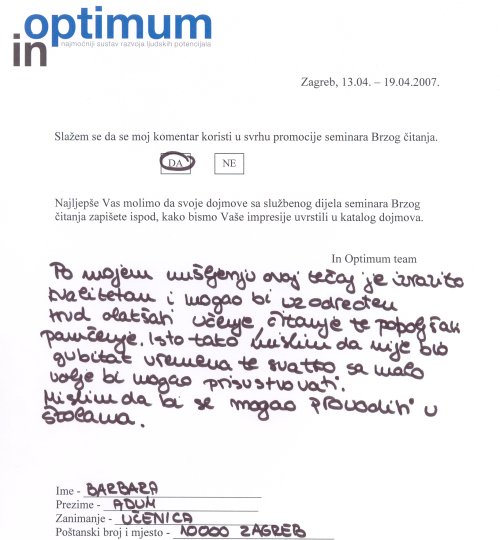 in optimum
najmoćniji sustav razvoja ljudskih potencijala
Zagreb, 13.04. – 19.04.2007.
Slažem se da se moj komentar koristi u svrhu promocije seminara Brzog čitanja.
DA NE
Najljepše Vas molimo da svoje dojmove sa službenog dijela seminara Brzog
čitanja zapišete ispod, kako bismo Vaše impresije uvrstili u katalog dojmova.
In Optimum team
Po mojem mišljenju ovaj tečaj je izrazito
kvalitetan i mogao bi uz određen
trud olakšati učenje čitanje te poboljšati
pamćenje. Isto tako mislim da nije bio
gubitak vremena te svatko sa malo
volje bi mogao prisustvovati.
Mislim da bi se mogao provoditi u
školama.
Ime - BARBARA
Prezime - ADUM
Zanimanje - UČENICA
Poštanski broj i mjesto - 10000 ZAGREB